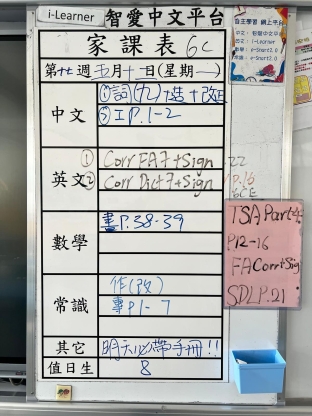 i-Learner 智愛中文平台
家課表 6C
第十七週五月十二日(星期一)
中文
①詞(九)+造+改
②工P.1-2
英文
① Corr FA7+Sign
② Corr Dict7+Sign
數學
畫P.38-39
常識
作(改)
專P1-7
其它
明天必帶手冊!!
值日生
8
自主學習 網上平台
TSA Part4
P12-16
FA Corr+Sig
SDLP.21